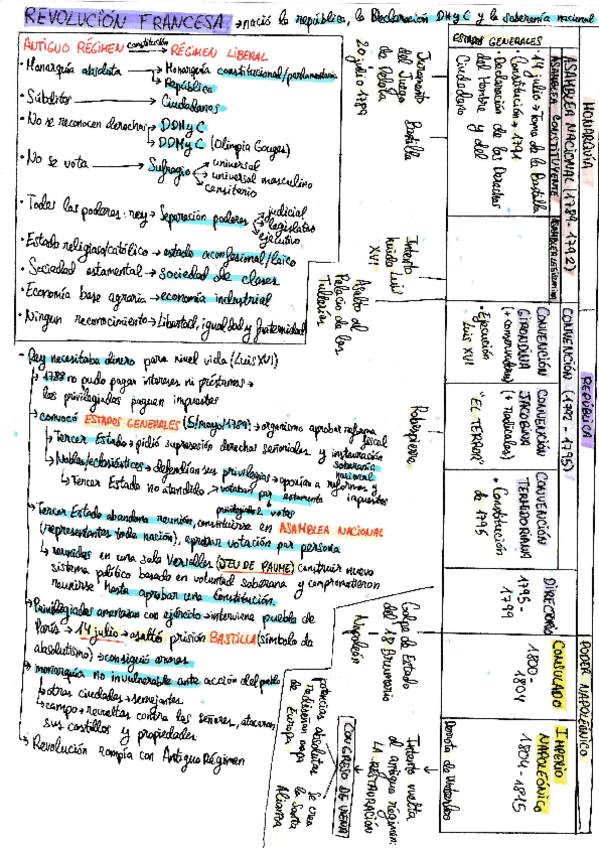 REVOLUCIÓN FRANCESA → nació la república, la Declaración DHyC y la soberanía nacional
ANTIGUO RÉGIMEN constitución → RÉGIMEN LIBERAL
· Monarquía absoluta → Monarquía constitucional/parlamentaria
→ República
· Súbditos → Ciudadanos
· No se reconocen derechos → DDHyC
→ DDMyC (Olimpia Gouges)
· No se vota → Sufragio → universal
→ universal masculino
→ censitario
· Todos los poderes: rey → Separación poderes → judicial
→ legislativo
→ ejecutivo
· Estado religioso/católico → estado aconfesional/laico
· Sociedad estamental → sociedad de clases
· Economía base agraria → economía industrial
· Ningun reconocimiento → Libertad, igualdad y fraternidad
- Rey necesitaba dinero para nivel vida (Luis XVI)
↳ 1788 no pudo pagar intereses ni préstamos →
los privilegiados paguen impuestos
→ convocó ESTADOS GENERALES (5/mayo/1789) → organismo aprobar reforma fiscal
↳ Tercer Estado → pidió supresión derechos señoriales y instauración soberanía nacional
↳ Nobles/eclesiásticos → defendían sus privilegios → oponían a reformas y impuestos
↳ Tercer Estado no atendido → votaban por estamento
privilegiados 2 votos
→ Tercer Estado abandona reunión, constituirse en ASAMBLEA NACIONAL
(representantes toda nación), aprobar votación por persona
↳ reunidos en una sala Versalles (JEU DE PAUME) construir nuevo
sistema político basado en voluntad soberana y comprometieron
reunirse hasta aprobar una Constitución.
→ Privilegiados amenazan con ejército → interviene pueblo de
París → 14 julio → asaltó prisión BASTILLA (símbolo de
absolutismo) → consiguió armas
→ monarquía no invulnerable ante acción del pueblo
↳ otras ciudades → semejantes
↳ campo → revueltas contra los señores, atacaron
sus castillos y propiedades
→ Revolución rompía con Antiguo Régimen
MONARQUÍA
REPÚBLICA
PODER NAPOLEÓNICO
ESTADOS GENERALES
ASAMBLEA NACIONAL (1789-1792)
ASAMBLEA CONSTITUYENTE
14 julio → Toma de la Bastilla
Constitución → 1791
Declaración de los Derechos
del Hombre y del
Ciudadano
ASAMBLEA LEGISLATIVA
CONVENCIÓN (1792-1795)
CONVENCIÓN
GIRONDINA
(+ conservadora)
• Ejecución
Luis XVI
CONVENCIÓN
JACOBINA
(+ radicales)
"EL TERROR"
CONVENCIÓN
TERMIDORIANA
• Constitución
de 1795
DIRECTORIO
1795-
1799
CONSULADO
1800-
1804
IMPERIO
NAPOLEÓNICO
1804-1815
Juramento Bastilla
del Juego
de Pelota
20 junio 1789
Intento
huida Luis
XVI
Asalto al
Palacio de las
Tullerías
Robespierre
Golpe de Estado
del 18 Brumario
Napoleón
Derrota de Waterloo
Intento vuelta
al antiguo régimen:
LA RESTAURACIÓN
CONGRESO DE VIENA
potencias absolutistas
rediseñan mapa
de Europa
Se crea
la Santa
Alianza